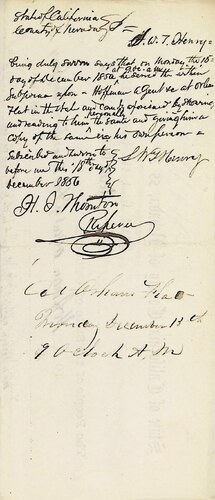 State of California
County of Nevada } ss
S. W. T. Henry
being duly sworn says that on Monday the 15
day of December 1856 he served the within
Subpoena upon Hoffman a Gent at
Flat in the State and County aforesaid by Showing
and reading to him the Same and giving him a
personally
copy of the same in his own person
Subscribed and sworn to
before me this 15th day
December 1856
S. W. T. Henry
H. I. Thornton
Referee
Flat
Monday December 15th
9 O clock A. M